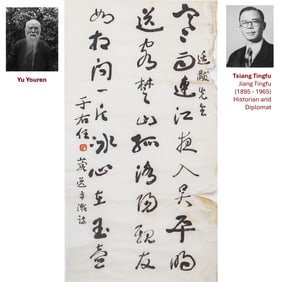 Yu Youren
Tsiang Tingfu
Jiang Tingfu
(1895 - 1965)
Historian and
Diplomat
廷黻先生
寒雨連江夜入吳平明
送客楚山孤洛陽親友
如相問一片冰心在玉壺
于右任
送辛漸詩